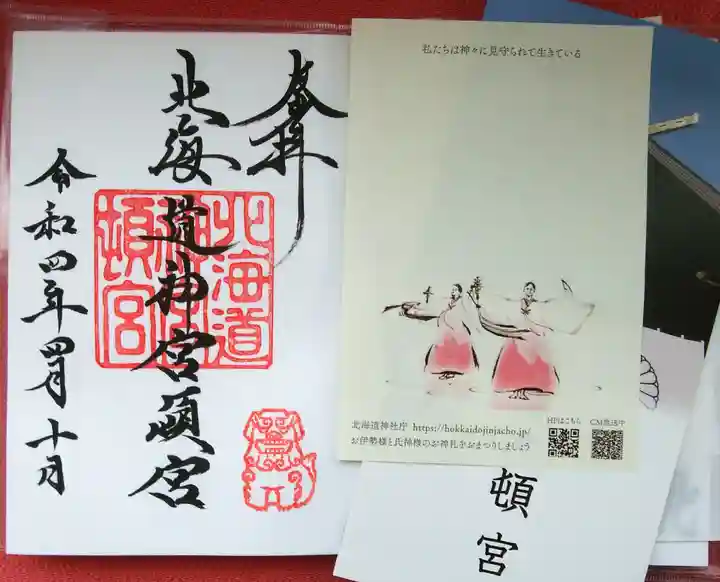 奉拝
北海道神宮頓宮
令和四年四月十日
北海道
神宮
頓宮
私たちは神々に見守られて生きている
北海道神社庁 https://hokkaidojinjacho.jp/
お伊勢様と氏神様のお神札をおまつりしましょう
HPはこちら
CM放送中
頓宮